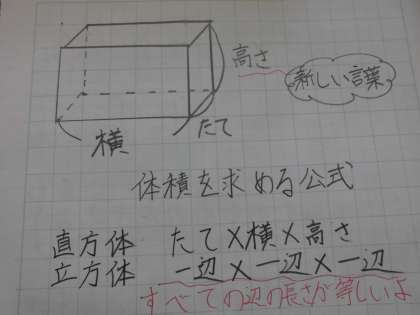 高さ
新しい言葉
横
たて
体積を求める公式
直方体 たて×横×高さ
立方体 一辺×一辺×一辺
すべての辺の長さが等しいよ